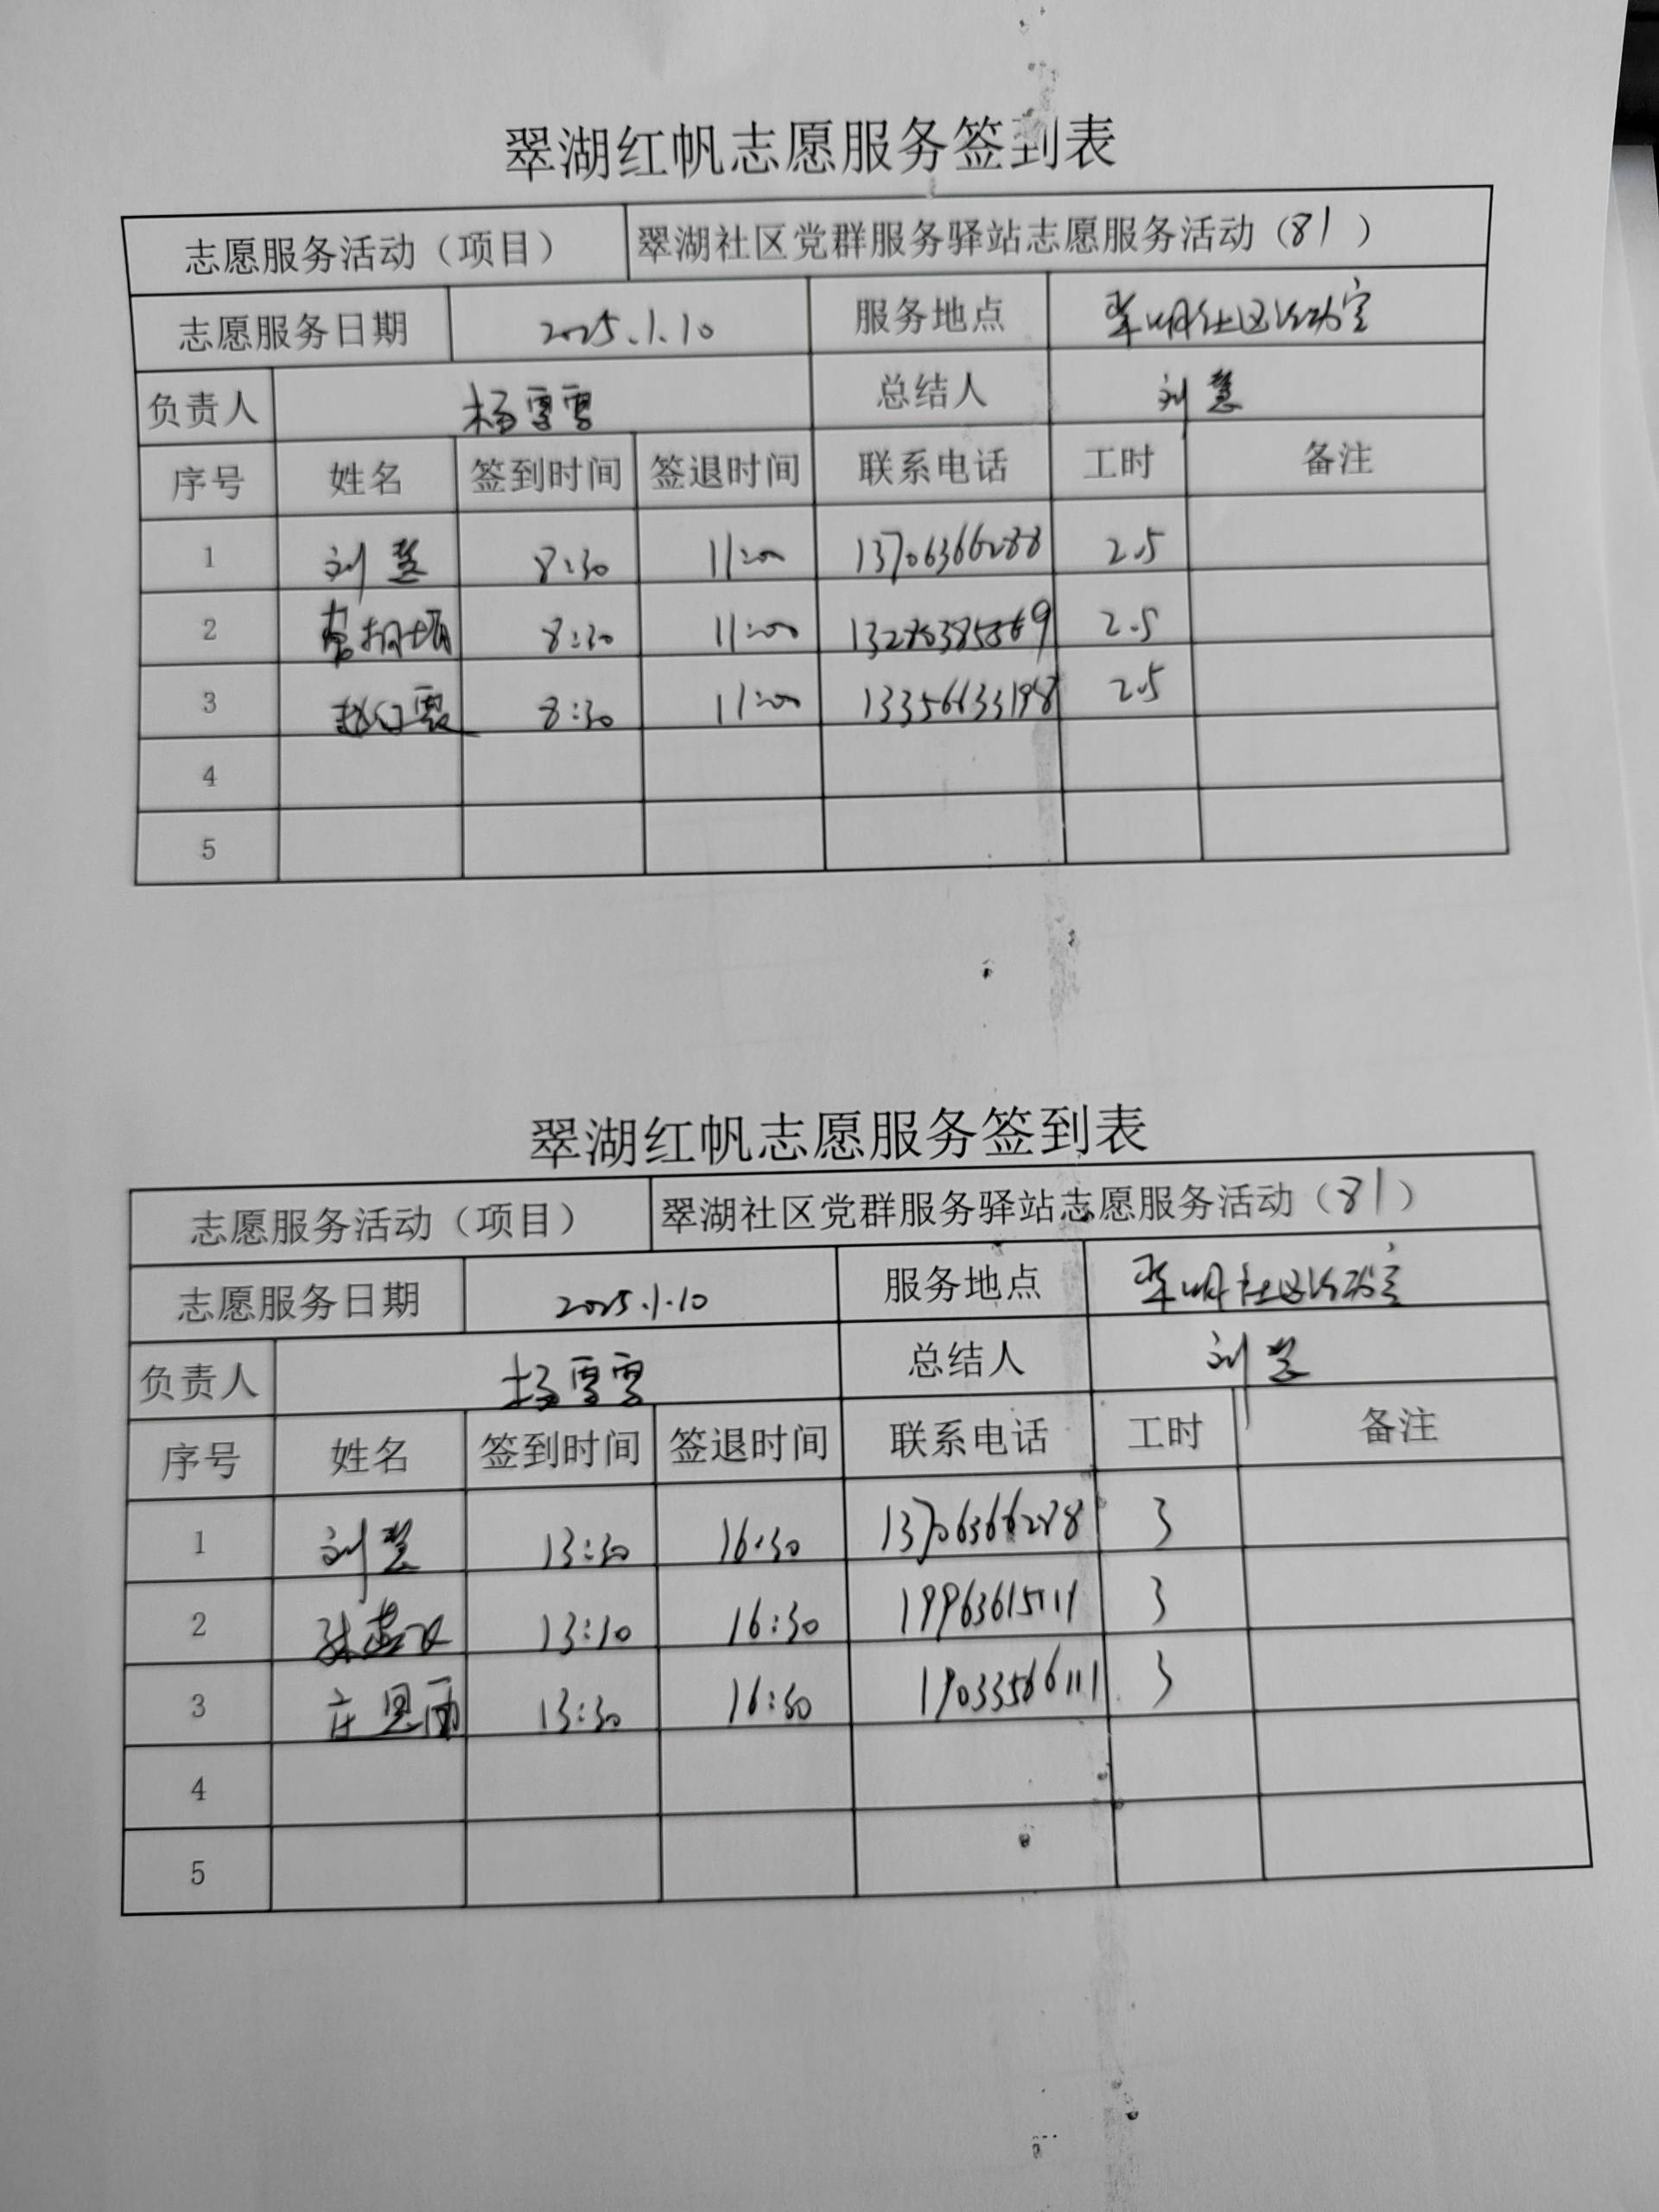 翠湖红帆志愿服务签到表
志愿服务活动（项目） 翠湖社区党群服务驿站志愿服务活动（81）
志愿服务日期 2025.1.10 服务地点 翠湖社区活动室
负责人 杨雪雪 总结人 刘慧
序号 姓名 签到时间 签退时间 联系电话 工时 备注
1 刘慧 8:30 11:00 13706366288 2.5
2 8:30 11:00 2.5
3 赵红霞 8:30 11:00 13356633198 2.5
4
5
翠湖红帆志愿服务签到表
志愿服务活动（项目） 翠湖社区党群服务驿站志愿服务活动（81）
志愿服务日期 2025.1.10 服务地点 翠湖社区活动室
负责人 杨雪雪 总结人 刘慧
序号 姓名 签到时间 签退时间 联系电话 工时 备注
1 刘慧 13:30 16:30 13706366288 3
2 13:30 16:30 3
3 庄恩雨 13:30 16:30 19033566111 3
4
5